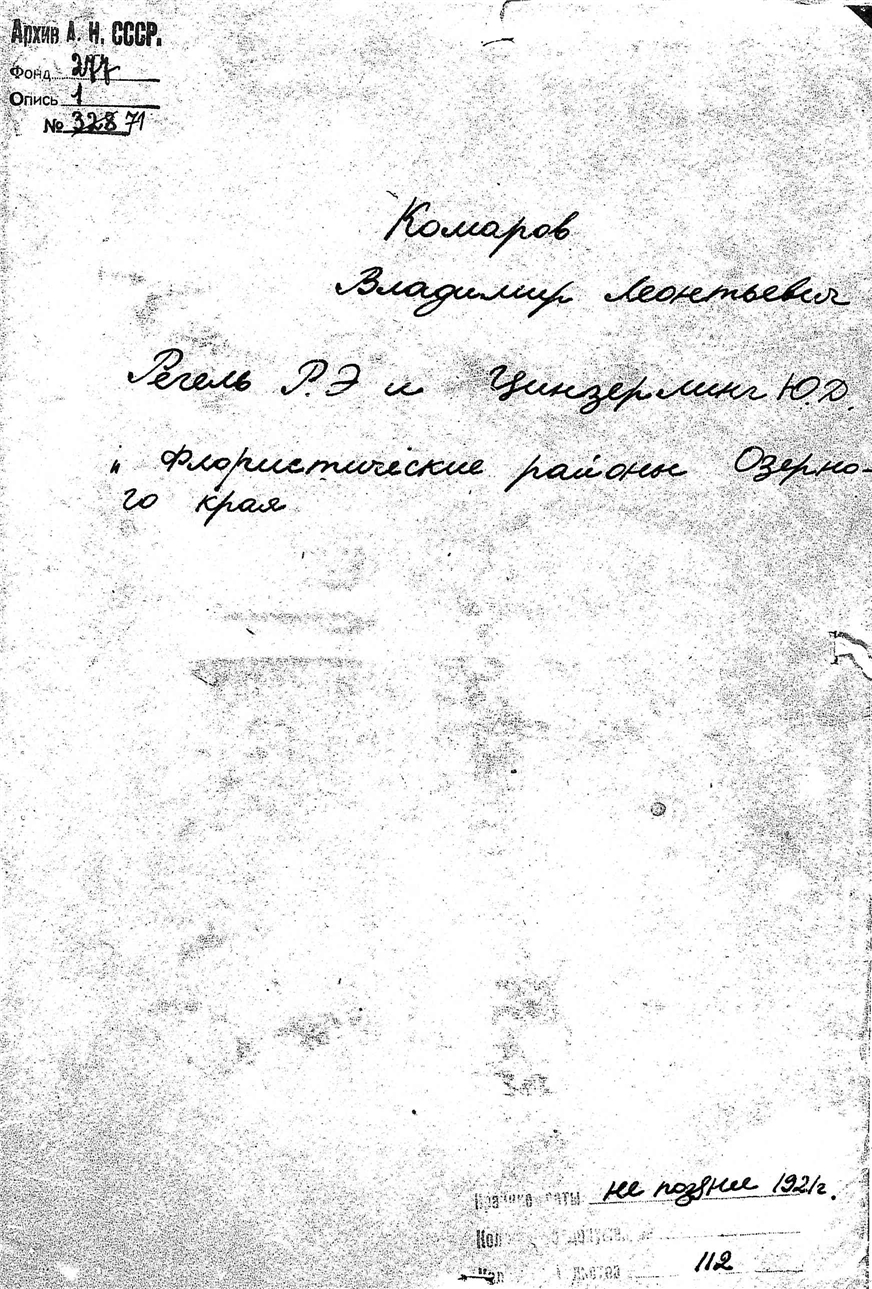 Архив А. Н. СССР.
Фонд 277
Опись 1
№ 328 71
Комаров
Владимир Леонтьевич
Регель Р.Э и Цинзерлинг Ю.Д.
„ Флористические районы Озерно-
го края
даты не позднее 1921 г.
листов 112